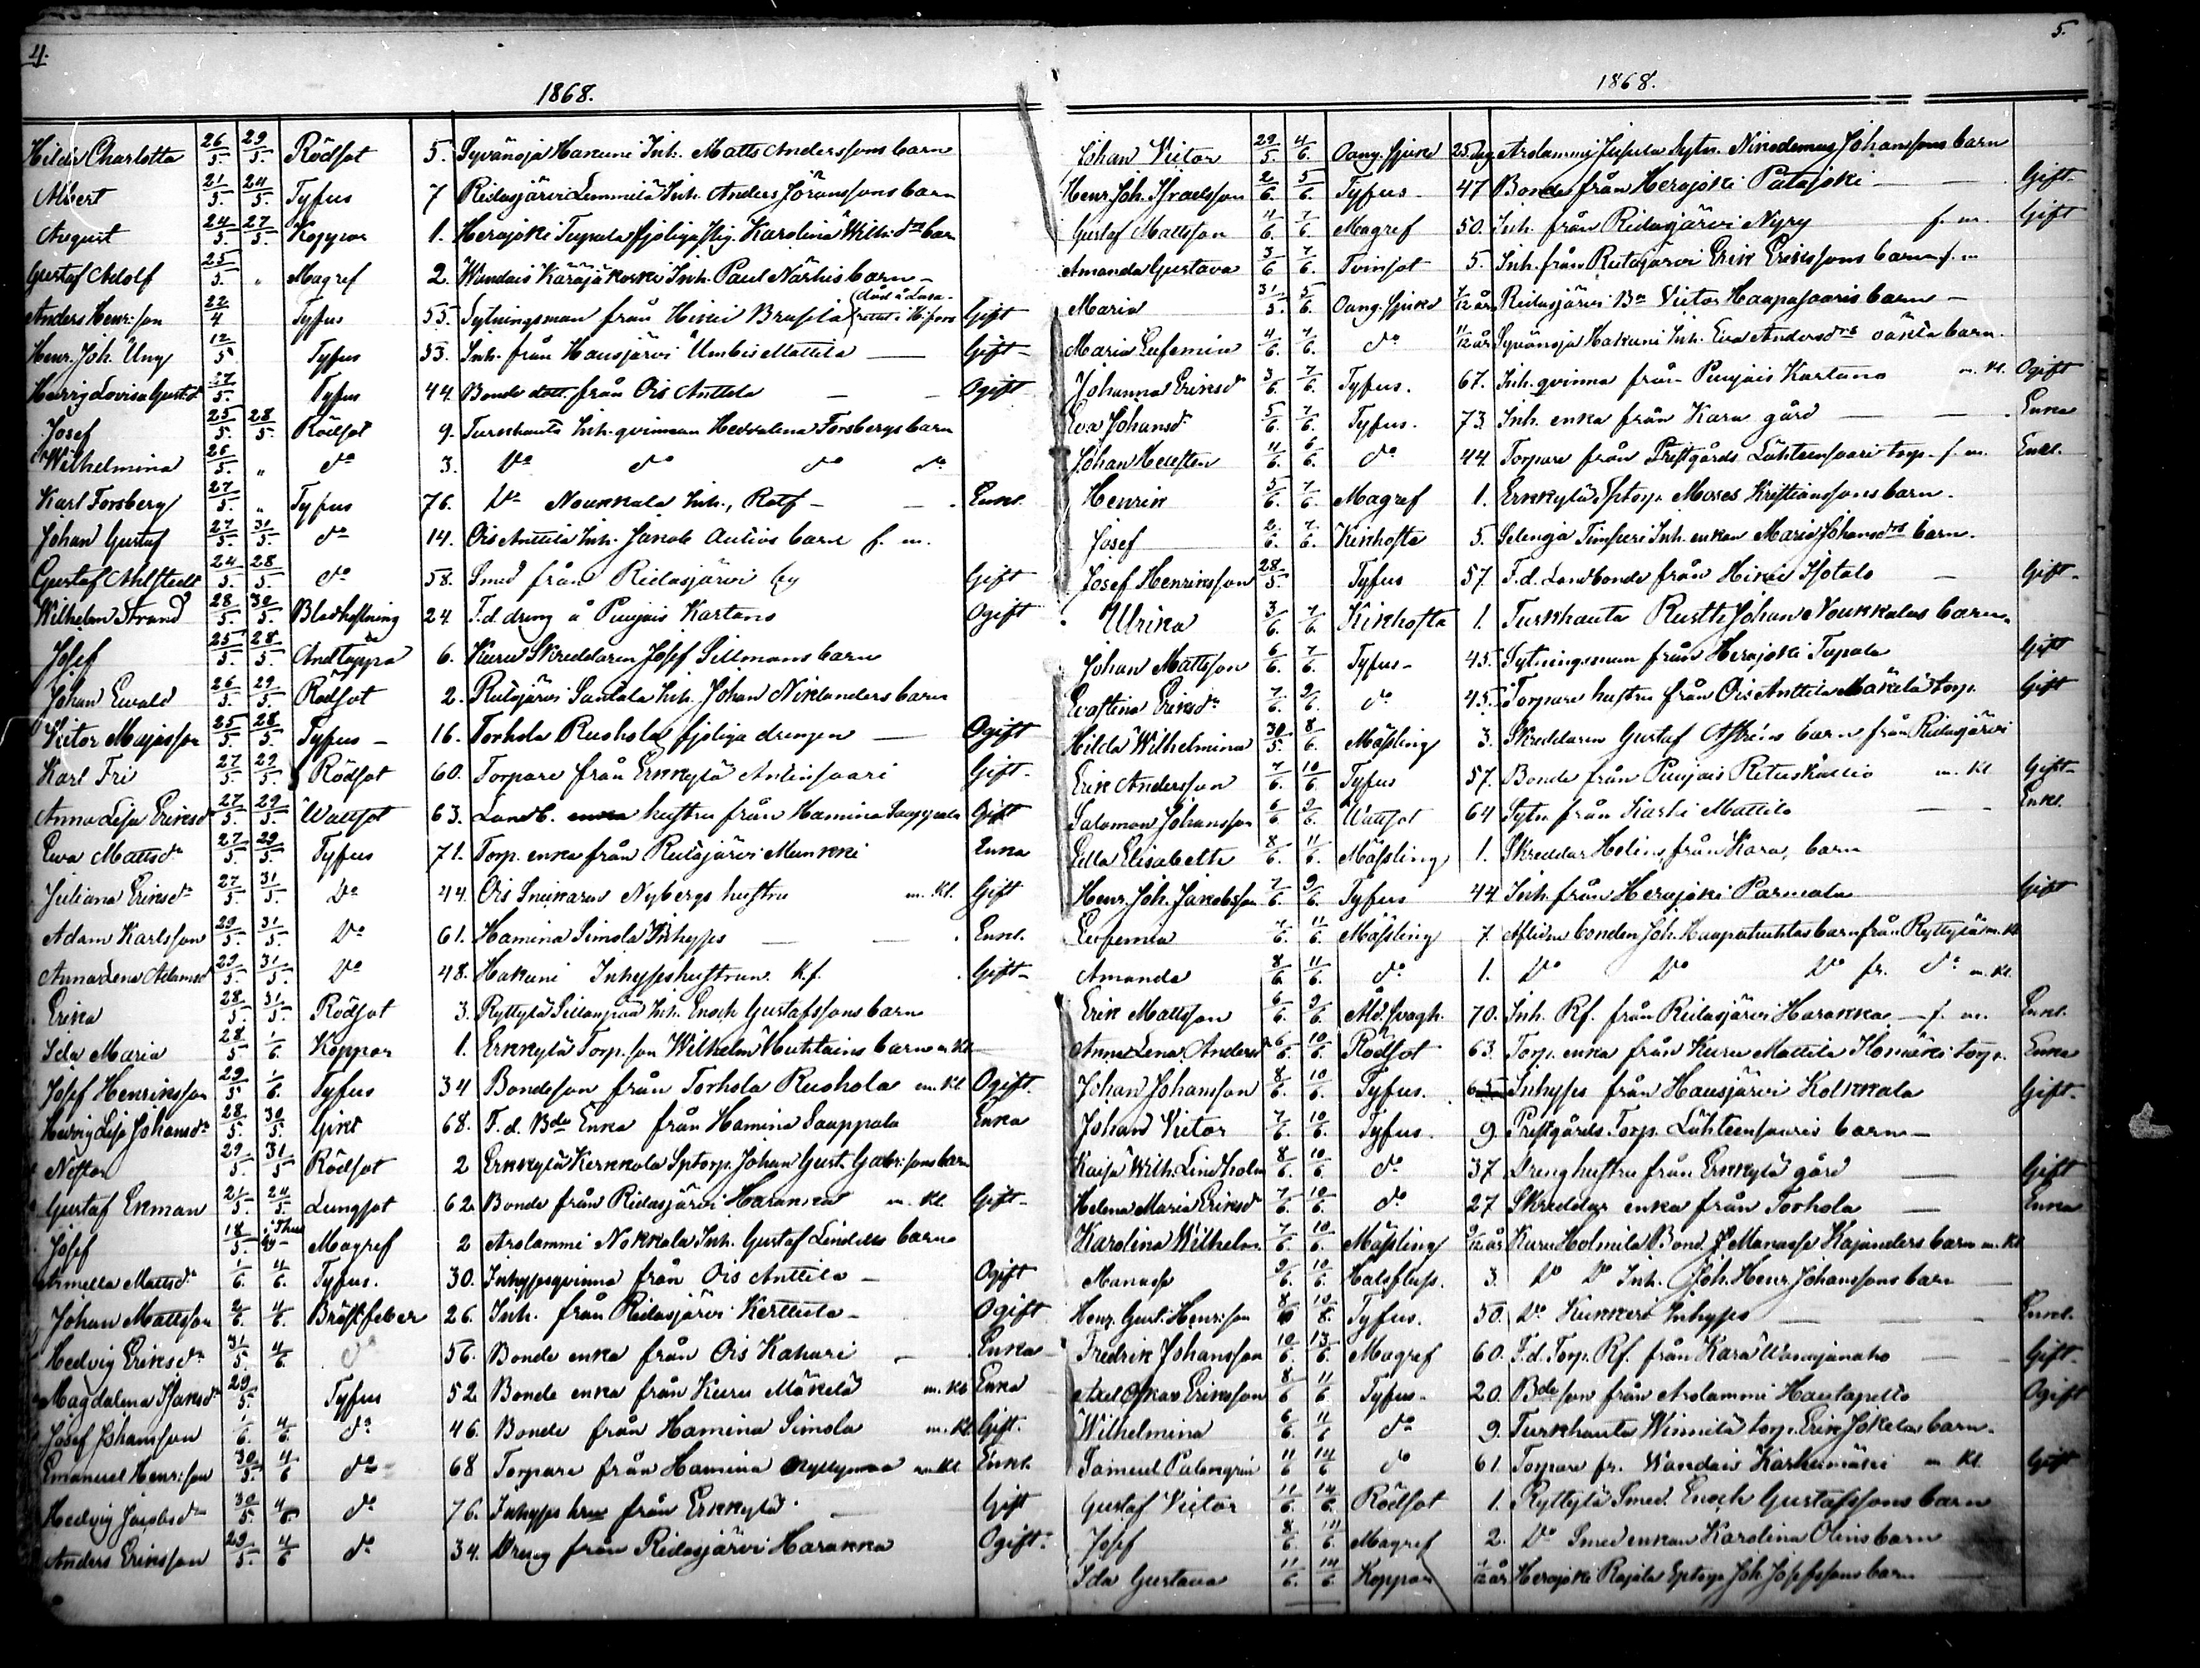 4.
1868.
Hilda Charlotta 26/5. 29/5. Rödsot 5. Syvänoja Hakuni Inh. Matts Anderssons barn
Albert 21/5. 24/5. Tyfus 7 Ridasjärvi Lemmilä Inh. Anders Jöranssons barn
August 24/5. 27/5. Koppor 1. Herajoki Tupala Karolina Wilh. barn
Gustaf Adolf 25/5. " Magref 2. Wandais Käräjäkoski Inh. Paul Närhis barn –
Anders Henr:son 22/4 Tyfus 55. Sytningsman från Hikiä (död å Lasarettet i H:fors Gift
Henr. Joh. Ung 12/5 Tyfus 53. Inh. från Hausjärvi Umbis Mattila — Gift –
Hedvig Lovisa Gust.d 27/5. Tyfus 44. Bonde dott. från Ois Anttila — Ogift
Josef 25/5. 28/5. Rödsot 9. Turkhauta Inh. qvinnan Hedvalena Forsbergs barn
Wilhelmina 26/5. " do 3. Do do do do
Karl Forsberg 27/5. " Tyfus 76. Do Noukkala Inh., Rotf – Enkl.
Johan Gustaf 27/5. 31/5. do 14. Ois Anttila Inh. Jakob Autios barn f. m.
Gustaf Ahlstedt 24/5. 28/5. do 58. Smed från Ridasjärvi by Gift
Wilhelm Strand 28/5. 30/5. Blodhostning 24. F.d. dreng å Puujois Kartano Ogift
Josef 25/5. 28/5. Andtäppa 6. Kuru Skreddaren Josef Sillmans barn
Johan Evald 26/5. 29/5. Rödsot 2. Rutajärvi Santala Inh. Johan Niklanders barn
Victor Majasson 25/5. 28/5. Tyfus – 16. Torhola Ruohola drengen — Ogift
Karl Fri 27/5 29/5. Rödsot 60. Torpare från Erkkylä Antinsaari Gift –
Anna Lisa Eriksd 27/5. 29/5. Wattsot 63. Landb. hustru från Hamina Saappala Gift
Eva Mattsdr 27/5. 29/5. Tyfus 71. Torp. enka från Rutajärvi Munkki Enka
Juliana Eriksdr 27/5. 31/5. Do 44. Ois Snikaren Nybergs hustru m. Kl. Gift
Adam Karlsson 29/5. 31/5. Do 61. Hamina Simola Inhyses — Enkl.
Anna Lena Adamsd 29/5. 31/5. Do 48. Hakuni Inhyseshustrun K.f. Gift –
Erika 28/5. 31/5. Rödsot 3. Ryttylä Sillanpää Inh. Enoch Gustafssons barn
Ida Maria 28/5 1/6. Koppor 1. Erkkylä Torp. son Wilhelm Huhtains barn m. Kl
Josef Henriksson 29/5 1/6. Tyfus 34 Bondeson från Torhola Ruohola m. Kl Ogift.
Hedvig Lisa Johansdr 28/5. 30/5. Gikt 68. F. d. Bde Enka från Hamina Saappala Enka
Nestor 29/5. 31/5 Rödsot 2 Erkkylä Kerkkola Sptorp. Johan Gust. Gabr:sons barn
Gustaf Ekman 21/5. 24/5. Lungsot 62. Bonde från Ridasjärvi Harakka m. Kl. Gift –
Josef 18/5. Magref 2 Arolammi Nokkala Inh. Gustaf Lindells barn
Armella Mattsdr 1/6. 4/6. Tyfus. 30. Inhysesqvinna från Ois Anttila – Ogift
Johan Mattsson 2/6. 4/6. Bröstfeber 26. Inh. från Ridasjärvi Kerttula – Ogift
Hedvig Eriksdr 31/5. 4/6. do 56. Bonde enka från Ois Kahari – Enka
Magdalena Isaksdr 29/5. Tyfus 52 Bonde enka från Kuru Mäkelä m. Kl Enka
Josef Johansson 1/6. 4/6. do 46. Bonde från Hamina Simola m. Kl. Gift.
Emanuel Henr:son 30/5. 4/6 do 68 Torpare från Hamina m. Kl. Enkl.
Hedvig Jacobsdr 30/5. 4/6. do 76. Inhyses från Erkkylä Gift
Anders Eriksson 29/5. 4/6 do 34. Dreng från Ridasjärvi Harakka Ogift.
5.
1868.
Johan Victor 29/5. 4/6. Oang. sjukd 25 dag Arolammi Sytn. Nikodemus Johanssons barn
Henr. Joh. Israelsson 2/6. 5/6. Tyfus. 47 Bonde från Herajoki Patajoki — Gift –
Gustaf Mattsson 4/6. 7/6. Magref 50. Inh. från Ridasjärvi Nyry f. m. Gift
Amanda Gustava 3/6 7/6. Tvinsot 5. Inh. från Rutajärvi Erik Erikssons barn f. m
Maria 31/5. 5/6. Oang. sjukd 7/12 år Ridasjärvi Bn Victor Haapasaaris barn –
Maria Eufemia 4/6. 7/6. do 11/12 år Syvänoja Hakuni Inh. Eva Andersdrs oäkta barn.
Johanna Eriksd 3/6 7/6. Tyfus. 67. Inh. qvinna från Puujois Kartano m. Kl. Ogift
Eva Johansdr 5/6 7/6. Tyfus. 73 Inh. enka från Kara gård — Enka
Johan 4/6. 6/6. do 44. Torpare från Prestgårds Lähteensaari torp. f. m. Enkl.
Henrik 5/6 7/6. Magref 1. Erkkylä Sptorp. Moses Kristianssons barn.
Josef 2/6. 7/6. Kikhosta 5. Selenoja Timperi Inh. enkan Maria Johansdrs barn.
Josef Henriksson 28/5. Tyfus 57. F.d. Landbonde från Hikiä Isotalo – Gift –
Ulrika 3/6. 7/6. Kikhosta 1. Turkhauta Rusth. Johan Noukkalas barn.
Johan Mattsson 6/6 7/6. Tyfus – 45. Sytningsman från Herajoki Tupala Gift
Evastina Eriksdr 7/6. 9/6. do 45. Torpare hustru från Ois Anttila Mäkelä torp. Gift
Hilda Wilhelmina 30/5 8/6. Mässling 3. Skreddaren Gustaf barn från Ridasjärvi
Erik Andersson 7/6. 10/6. Tyfus 57. Bonde från Puujois Retuskallio m. Kl. Gift –
Salomon Johansson 6/6 9/6. Wattsot 64 Sytn från Karhi Mattila Enkl.
Edla Elisabeth 8/6. 11/6. Mässling 1. Skreddar Helins, från Kara, barn
Henr. Joh. Jakobsson 7/6. 9/6. Tyfus 44 Inh. från Herajoki Parmala Gift
Eufemia 7/6. 11/6. Mässling 7. Aflidna bonden Joh. Haapahuhtas barn från Ryttylä m. Kl
Amanda 8/6. 11/6. do 1. Do Do Do fr. do m. Kl.
Erik Mattsson 6/6. 9/6. Åld. svagh. 70. Inh. Rf. från Ridasjärvi Harakka — f. m. Enkl.
Anna Lena Andersd 6/6. 10/6. Rödsot 63. Torp. enka från Kuru Mattila torp. Enka
Johan Johansson 8/6. 10/6. Tyfus. 65. Inhyses från Hausjärvi Kolkkala Gift –
Johan Victor 7/6. 10/6. Tyfus. 9. Prestgårds Torp. Lähteensaaris barn –
Kaisa Wilh. Lindholm 8/6. 10/6. do 37 Drenghustru från Erkkylä gård — Gift
Helena Maria Eriksd 7/6. 10/6. do 27 Skreddar enka från Torhola — Enka
Karolina Wilhelm. 7/6. 10/6. Mässling 9/12 år Kuru Holmila Bond. Manasse Kajanders barn m. Kl
Manasse 9/6. 10/6. Halsfluss. 3. Do Do Inh. Joh. Henr. Johanssons barn
Henr. Gust. Henr:son 8/6 10/8. Tyfus. 50. Do Kukkeri Inhyses — Enkl.
Fredrik Johansson 10/6 13/6. Magref 60. F.d. Torp. Rf. från Kara — Gift –
Axel Oskar Eriksson 8/6 11/6 Tyfus – 20. Bdeson från Arolammi Hautapelto Ogift
Wilhelmina 6/6. 11/6 do 9. Turkhauta Winnilä torp. Erik Jokelas barn.
Tameul Palongrén 11/6 14/6 do 61. Torpare fr. Wandais Karhumäki m Kl. Gift
Gustaf Victor 11/6. 14/6. Rödsot 1. Ryttylä Smed. Enoch Gustafssons barn
Josef 8/6. 11/6. Magref 2. Do Smedenkan Karolina Olins barn
Ida Gustava 11/6. 14/6. Koppor /12 år Herajoki Rajala Sptorp Joh. Josefssons barn